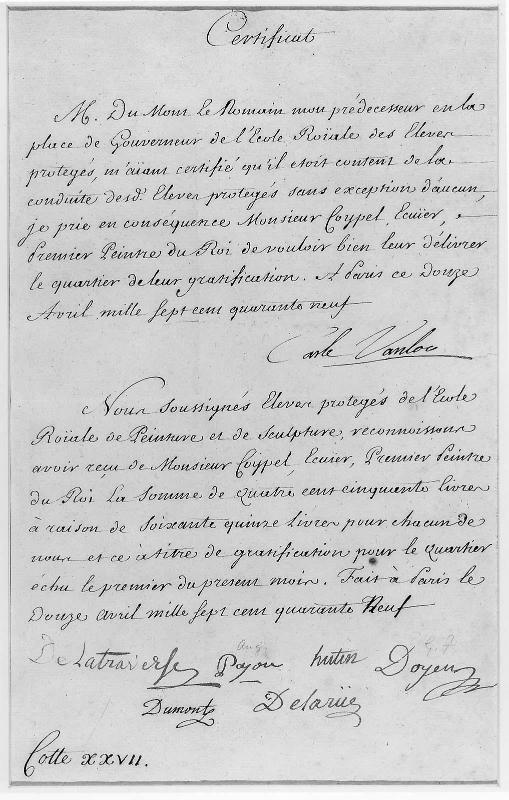 Certificat
M. Du Mont Le Romain mon prédecesseur en la
place de Gouverneur de l'Ecole Roïiale des Eleves
protegés, m'aïant certifié qu'il etoit content de la
conduite desd. Eleves protegés sans exception d'aucun,
je prie en conséquence Monsieur Coypel, Ecuïer,
Premier Peintre du Roi de vouloir bien leur délivrer
le quartier de leur gratification. A Paris ce Douze
Avril mille sept cent quarante neuf
Carle Vanloo
Nous soussignés Eleves protegés de l'Ecole
Roïiale de Peinture et de Sculpture, reconnoissons
avoir reçu de Monsieur Coypel, Ecuier, Premier Peintre
du Roi La Somme de quatre cent cinquante livres
à raison de soixante quinze livres pour chacun de
nous et ce a titre de gratification pour le quartier
échu le premier du present mois. Fait à Paris le
Douze avril mille sept cent quarante Neuf
Delatraverse Pajou hutin Doyen
Dumont Delarüe
Cotte XXVII.